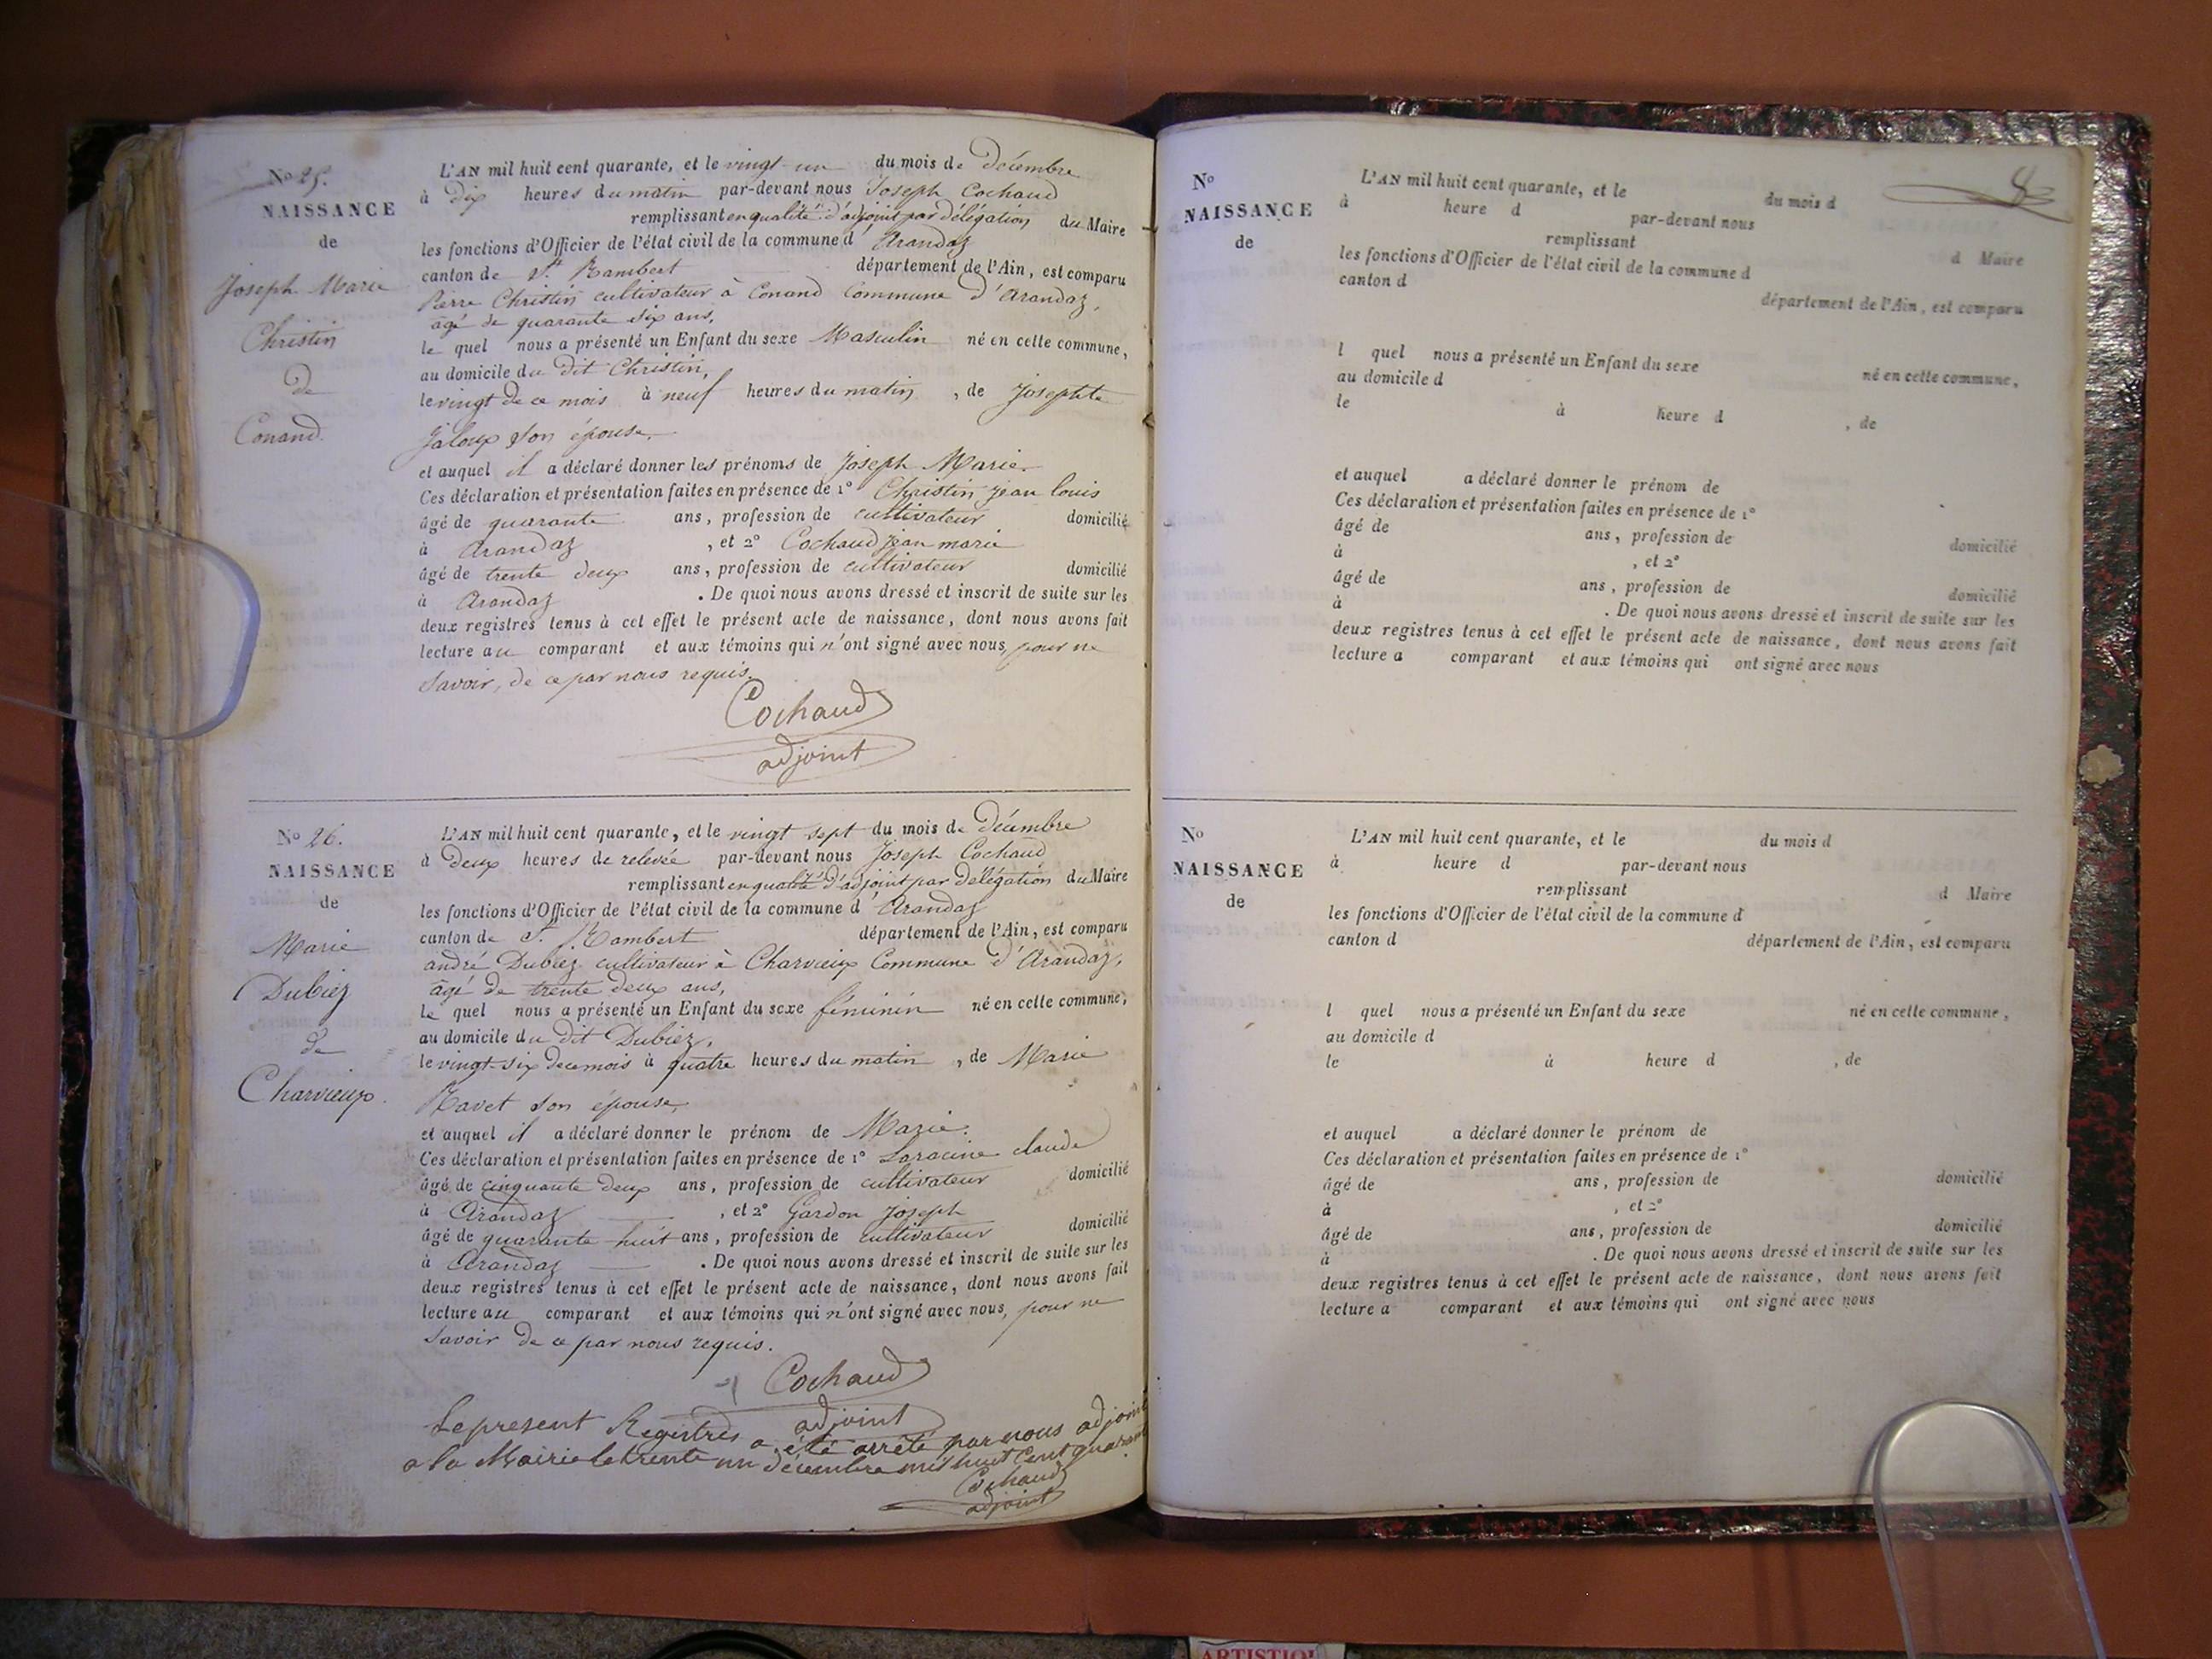 Nº 25.
NAISSANCE
de
Joseph Marie
Christin
De
Conand.
L'AN mil huit cent quarante, et le vingt-un du mois de Décembre
à Dix heures du matin par-devant nous Joseph Cochaud
remplissant en qualité d'adjoint par délégation du Maire
les fonctions d'Officier de l'état civil de la commune d'Arandaz
canton de St. Rambert département de l'Ain, est comparu
Pierre Christin cultivateur à Conand Commune d'Arandaz,
âgé de quarante six ans,
le quel nous a présenté un Enfant du sexe Masculin né en cette commune,
au domicile du dit Christin,
le vingt de ce mois à neuf heures du matin, de Josephte
Jaloux son épouse,
et auquel il a déclaré donner les prénoms de Joseph Marie.
Ces déclaration et présentation faites en présence de 1º Christin jean louis
âgé de quarante ans, profession de cultivateur domicilié
à Arandaz, et 2º Cochaud jean marie
âgé de trente deux ans, profession de cultivateur domicilié
à Arandaz. De quoi nous avons dressé et inscrit de suite sur les
deux registres tenus à cet effet le présent acte de naissance, dont nous avons fait
lecture au comparant et aux témoins qui n'ont signé avec nous, pour ne
Savoir, de ce par nous requis.
Cochaud
adjoint
Nº 26.
NAISSANCE
de
Marie
Dubiez
de
Charvieux.
L'AN mil huit cent quarante, et le vingt sept du mois de Décembre
à Deux heures de relevée par-devant nous Joseph Cochaud
remplissant en qualité d'adjoint par délégation du Maire
les fonctions d'Officier de l'état civil de la commune d'Arandaz
canton de St. Rambert département de l'Ain, est comparu
andré Dubiez cultivateur à Charvieux Commune d'Arandaz,
âgé de trente deux ans,
le quel nous a présenté un Enfant du sexe féminin né en cette commune,
au domicile du dit Dubiez,
le vingt-six de ce mois à quatre heures du matin, de Marie
Ravet son épouse,
et auquel il a déclaré donner le prénom de Marie.
Ces déclaration et présentation faites en présence de 1º Laracine claude
âgé de cinquante deux ans, profession de cultivateur domicilié
à Arandaz, et 2º Gardon Joseph
âgé de quarante huit ans, profession de cultivateur domicilié
à Arandaz. De quoi nous avons dressé et inscrit de suite sur les
deux registres tenus à cet effet le présent acte de naissance, dont nous avons fait
lecture au comparant et aux témoins qui n'ont signé avec nous, pour ne
Savoir de ce par nous requis.
Cochaud
adjoint
Le present Registres a été arrêté par nous adjoint
a la Mairie le trente un décembre mil huit Cent quarante
Cochaud
adjoint
8
Nº
NAISSANCE
de
L'AN mil huit cent quarante, et le du mois d
à heure d par-devant nous
remplissant d Maire
les fonctions d'Officier de l'état civil de la commune d
canton d département de l'Ain, est comparu
l quel nous a présenté un Enfant du sexe né en cette commune,
au domicile d
le à heure d , de
et auquel a déclaré donner le prénom de
Ces déclaration et présentation faites en présence de 1º
âgé de ans, profession de domicilié
à , et 2º
âgé de ans, profession de domicilié
à . De quoi nous avons dressé et inscrit de suite sur les
deux registres tenus à cet effet le présent acte de naissance, dont nous avons fait
lecture a comparant et aux témoins qui ont signé avec nous
Nº
NAISSANCE
de
L'AN mil huit cent quarante, et le du mois d
à heure d par-devant nous
remplissant d Maire
les fonctions d'Officier de l'état civil de la commune d
canton d département de l'Ain, est comparu
l quel nous a présenté un Enfant du sexe né en cette commune,
au domicile d
le à heure d , de
et auquel a déclaré donner le prénom de
Ces déclaration et présentation faites en présence de 1º
âgé de ans, profession de domicilié
à , et 2º
âgé de ans, profession de domicilié
à . De quoi nous avons dressé et inscrit de suite sur les
deux registres tenus à cet effet le présent acte de naissance, dont nous avons fait
lecture a comparant et aux témoins qui ont signé avec nous